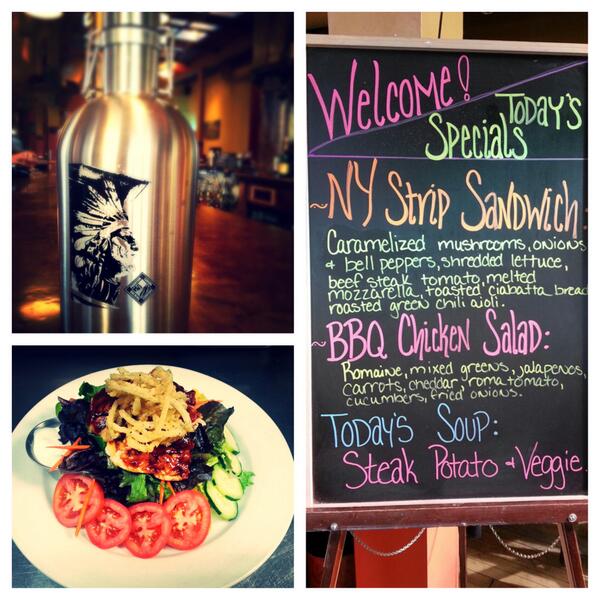 Welcome!
Today's
Specials
~NY Strip Sandwich:
Caramelized mushrooms, onions
& bell peppers, shredded lettuce,
beef steak tomato, melted
mozzarella, toasted ciabatta bread
roasted green chili aioli.
~BBQ Chicken Salad:
Romaine, mixed greens, jalapenos,
carrots, cheddar, roma tomato,
cucumbers, fried onions.
Today's Soup:
Steak Potato & Veggie